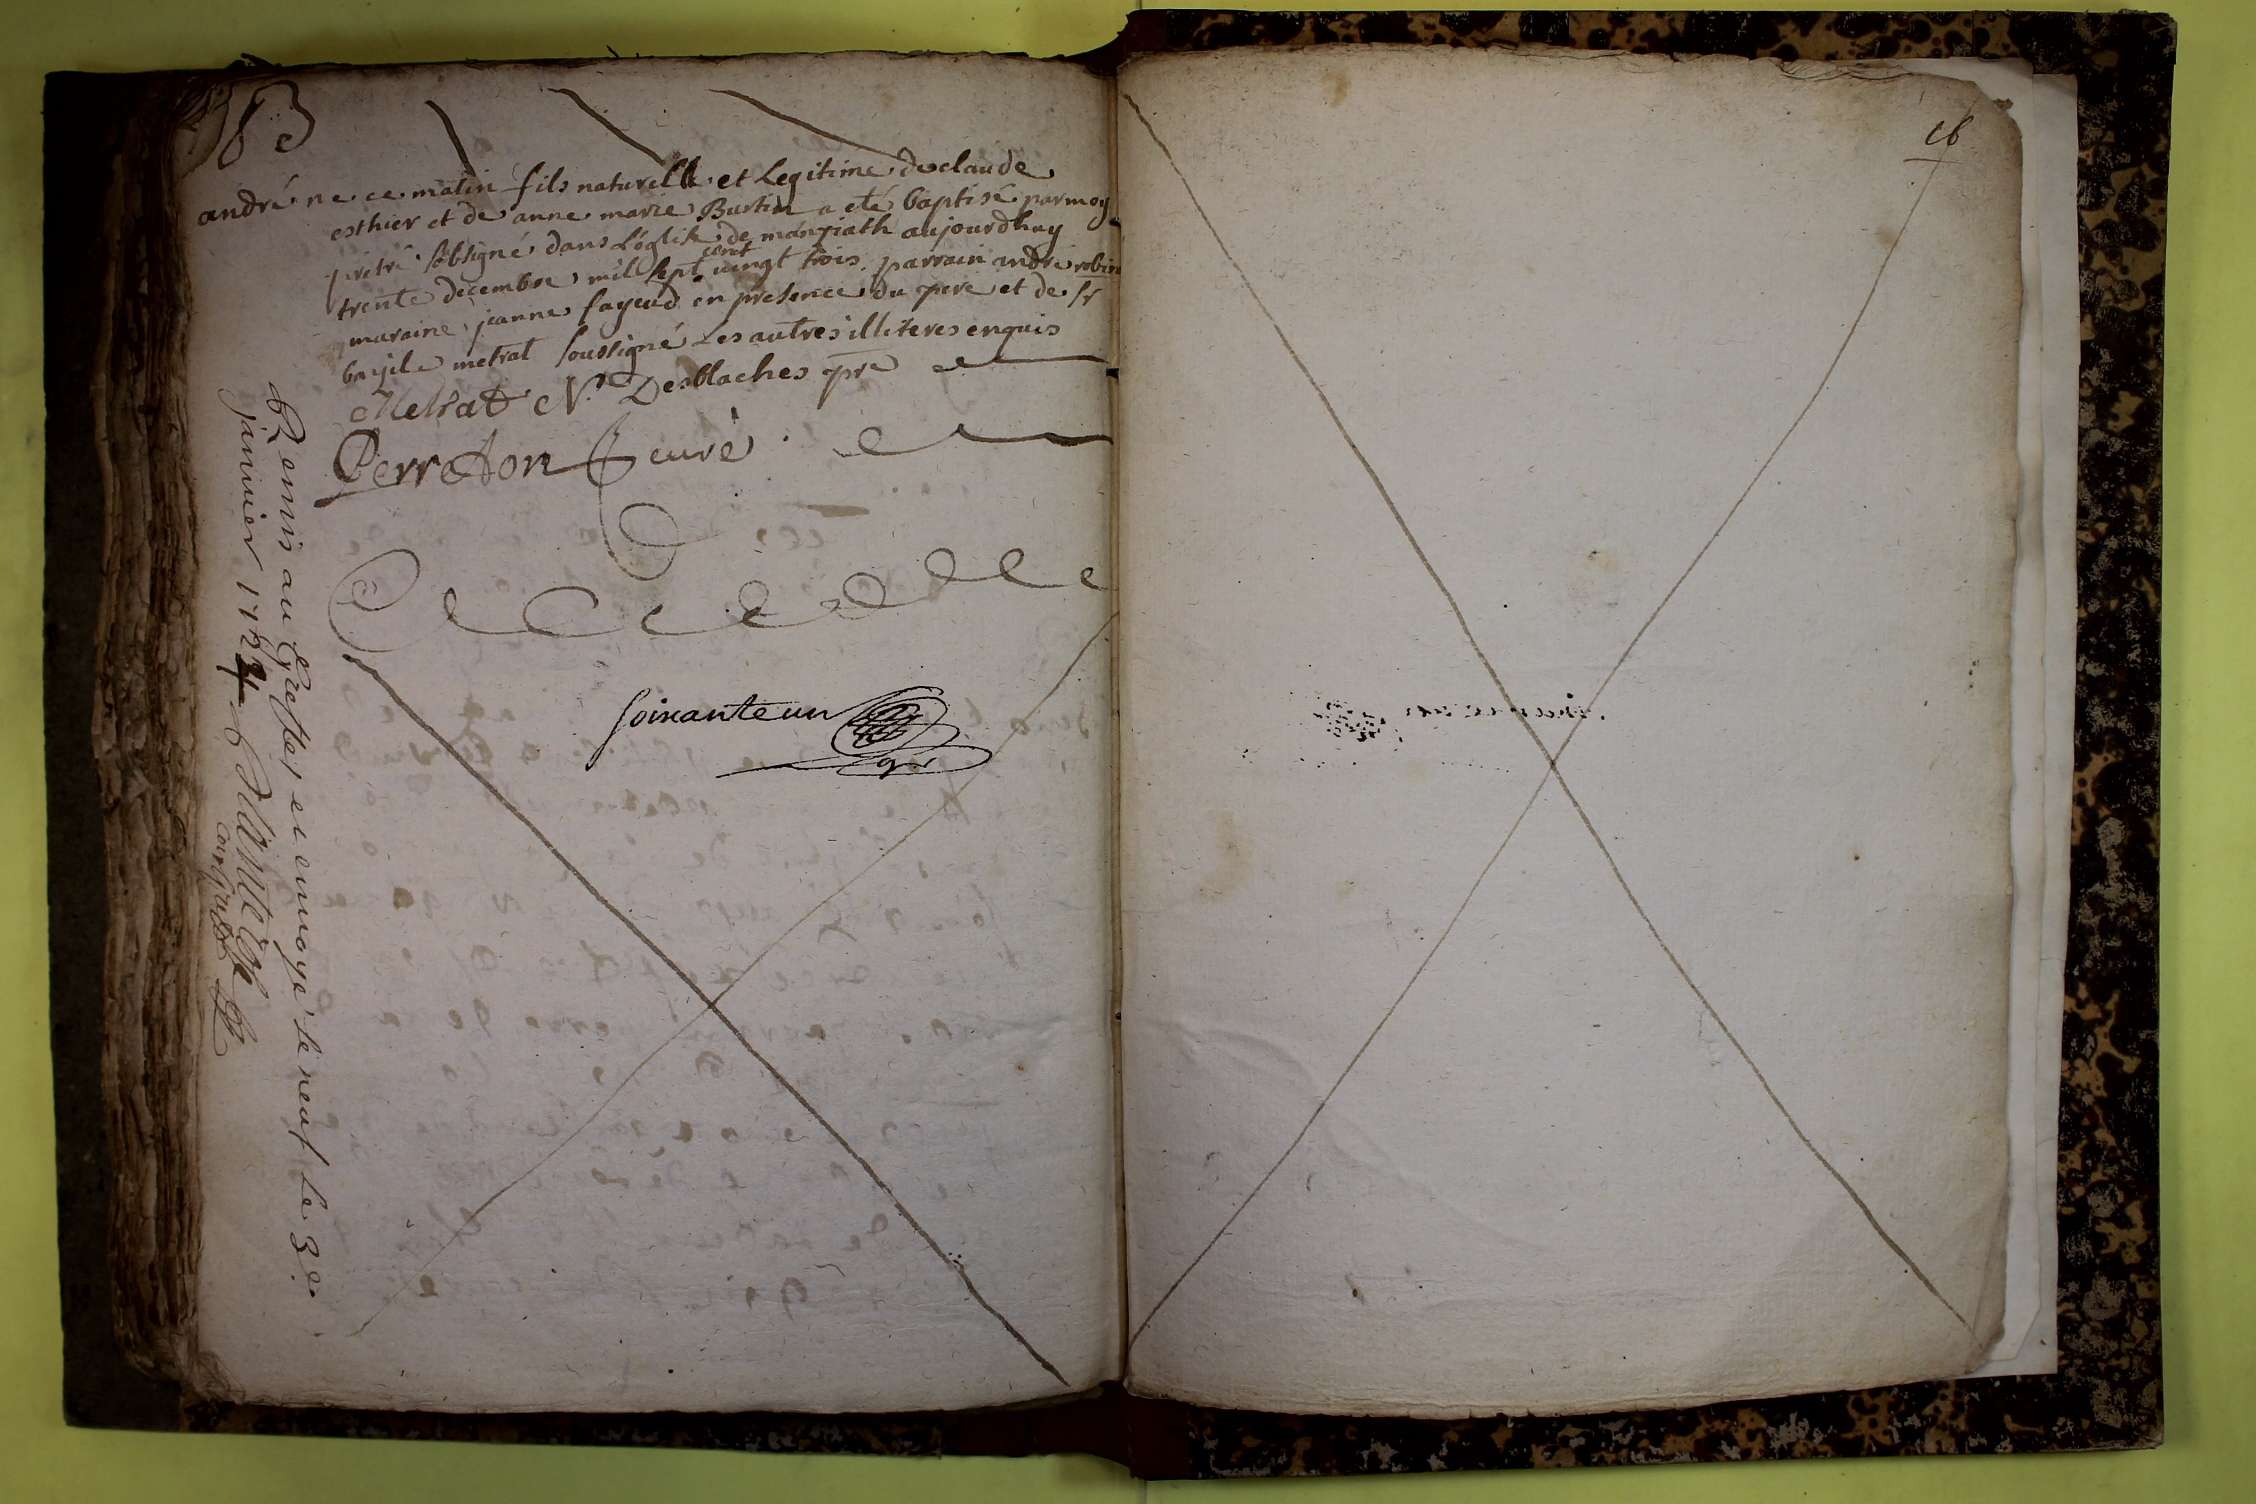 63
andré ne ce matin fils naturell et Legitime de claude
esthier et de anne marie Burtin a eté baptisé par moy
pretre sobsigné dans L'églik de manziath aujourdhuy
trente decembre mil sept cent vingt trois. parrain andré robin
maraine jeanne fayeud en presence du pere et de sr
metrat soussigné Les autres illiteres enquis
Metrat N. Desblaches pre
Perreton curé
soixante un
Remis au Greffes et envoyé le neuf Le 3e
janvier 1724
16